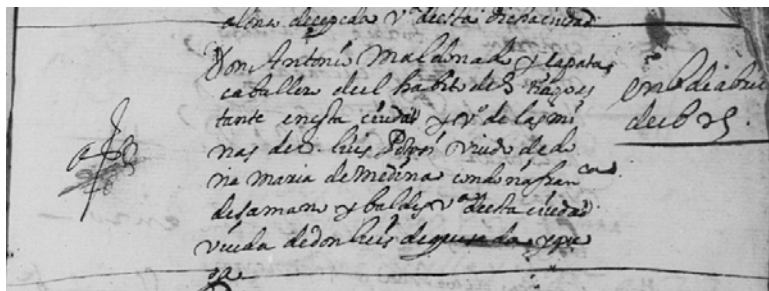 alona decepeda vª deesta dicha ciudad
Don Antonio Maldonado y sapata
caballero deel habito de S. tiago es
tante en esta ciudad y vº de las mi
nas de S. luis Potosi viudo de do
ña maria de medina con doña fran ca
de samano y baldes vª deesta ciudad
viuda de don luis de
en 6 de abril